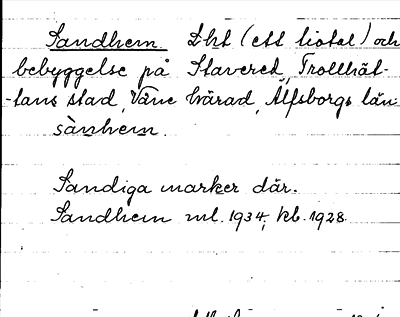 Sandhem Lht (ett tiotal) och
bebyggelse på Stavered, Trollhät-
-tans stad, Väne härad, Älfsborgs län
sànhem.
Sandiga marker där.
Sandhem ml. 1934, kb. 1928